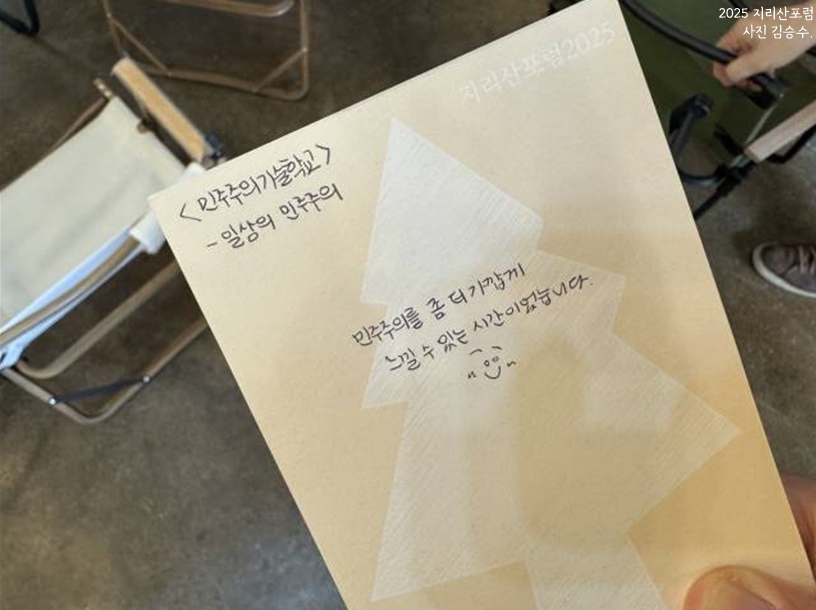 2025 지리산포럼
사진 김승수.
지리산포럼2025
<민주주의기술학교>
- 일상의 민주주의
민주주의를 좀 더 가깝게
느낄 수 있는 시간이었습니다.